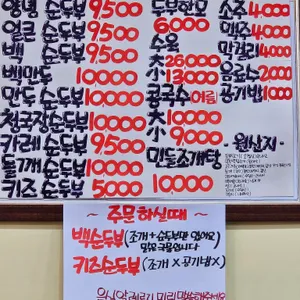 양념 순두부 9,500
얼큰 순두부 9,500
백 순두부 9,500
백만두 10,000
만두 순두부 10,000
청국장순두부 10,000
카레 순두부 9,500
들깨 순두부 10,000
키즈 순두부 5,000
두부한모
6,000
수육
大 26,000
小 13,000
콩국수 여름
大 10,000
小 9,000
민들조개탕
10,000
소주 4,000
맥주 4,000
막걸리 4,000
음료수 2,000
공기밥 1,000
-원산지-
~ 주문하실때 ~
백순두부 (조개+순두부만 있어요)
맑은국물입니다
키즈순두부 (조개 X 공기밥X)